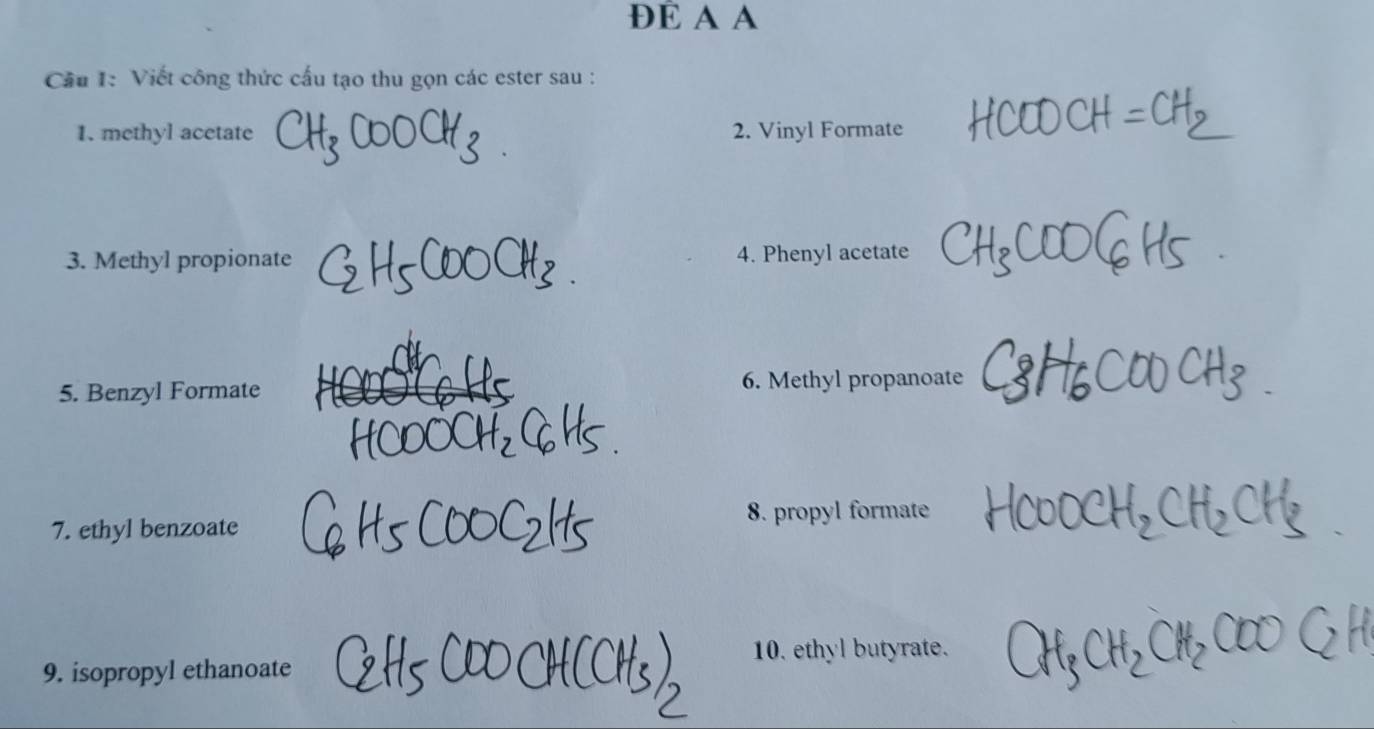 ĐỀ A A
Câu 1: Viết công thức cấu tạo thu gọn các ester sau :
1. methyl acetate CH₃COOCH₃. 2. Vinyl Formate HCOOCH=CH₂
3. Methyl propionate C₂H₅COOCH₃. 4. Phenyl acetate CH₃COOC₆H₅.
5. Benzyl Formate 6. Methyl propanoate C₃H₆COOCH₃.
HCOOCH₂C₆H₅.
7. ethyl benzoate C₆H₅COOC₂H₅ 8. propyl formate HCOOCH₂CH₂CH₃.
9. isopropyl ethanoate C₂H₅COOCH(CH₃)₂ 10. ethyl butyrate. CH₃CH₂CH₂COOC₂H